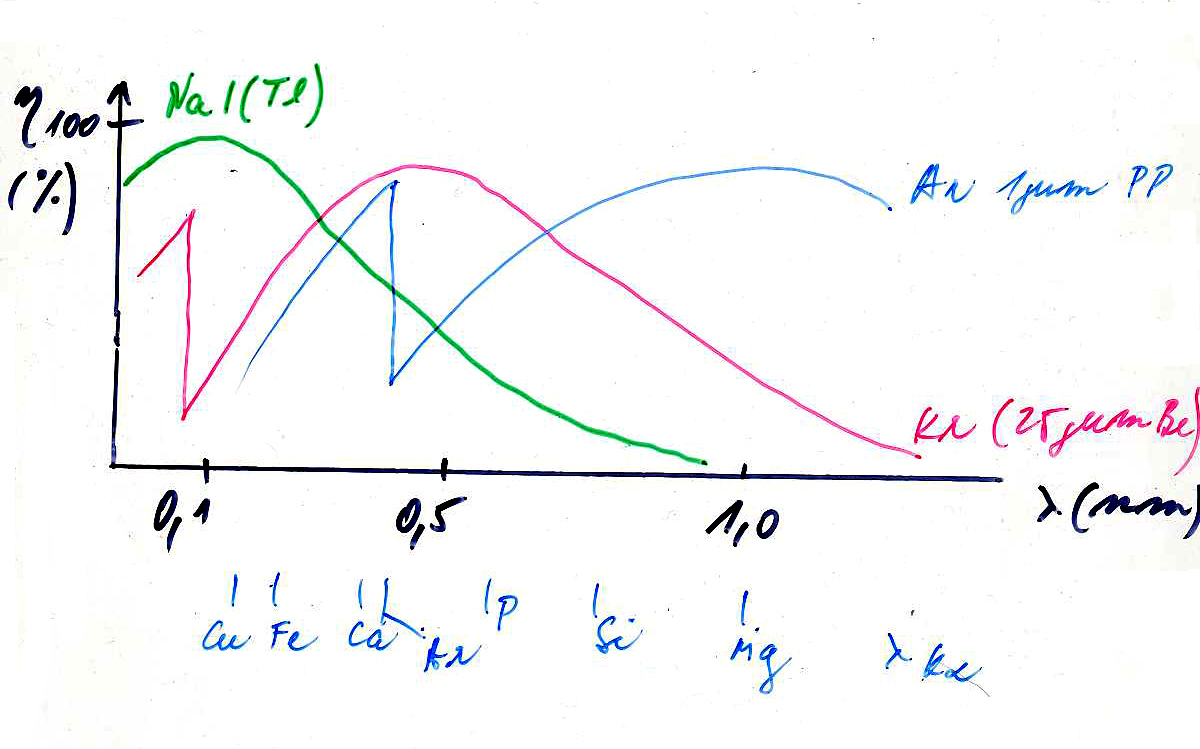 Na I (Tl)
η 100
(%)
Ar 1μm PP
Kr (25μm Be)
0,1 0,5 1,0 λ (nm)
Cu Fe Ca Ar P Si Mg λ Kα